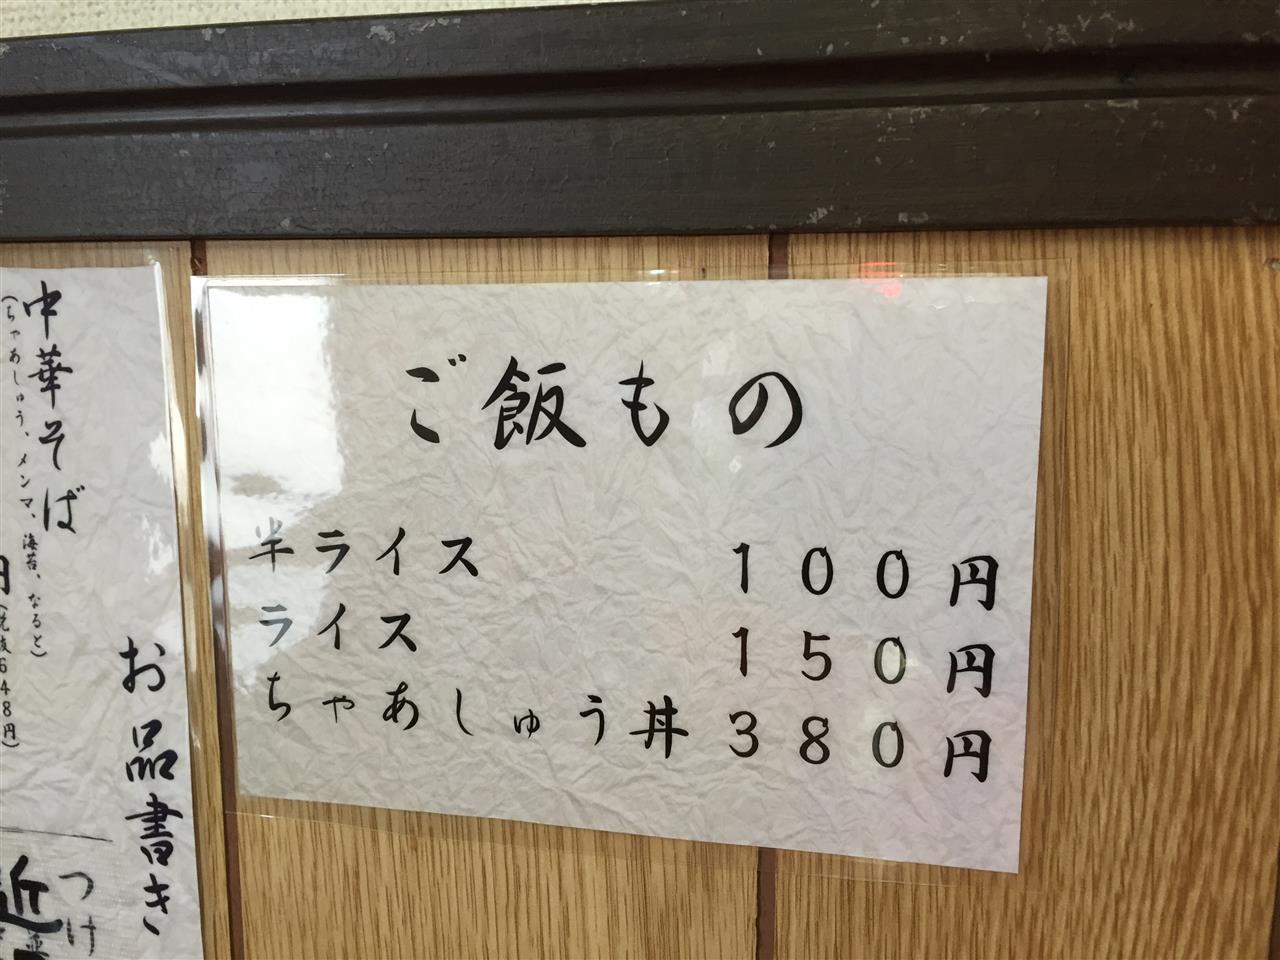 ご飯もの
半ライス 100円
ライス 150円
ちゃあしゅう丼 380円
お品書き
中華そば
(ちゃあしゅう、メンマ、海苔、なると)
円(税抜648円)
つけ
近